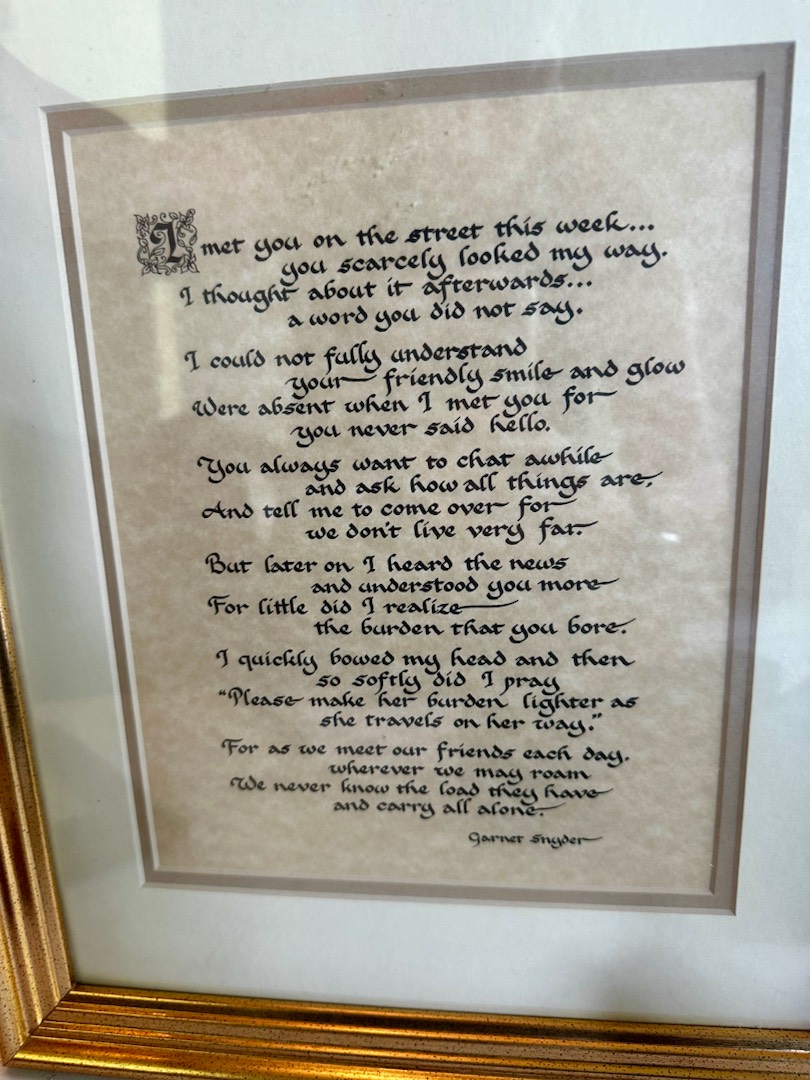 I met you on the street this week...
you scarcely looked my way.
I thought about it afterwards...
a word you did not say.
I could not fully understand
your friendly smile and glow
Were absent when I met you for
you never said hello.
You always want to chat awhile
and ask how all things are,
And tell me to come over for
we don't live very far.
But later on I heard the news
and understood you more
For little did I realize
the burden that you bore.
I quickly bowed my head and then
so softly did I pray
"Please make her burden lighter as
she travels on her way."
For as we meet our friends each day,
wherever we may roam
We never know the load they have
and carry all alone.
Garnet Snyder